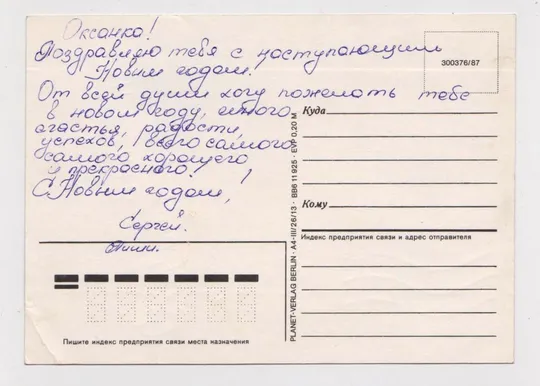 Оксанка!
Поздравляю тебя с наступающим
Новым годом.
От всей души хочу пожелать тебе
в новом году, много
счастья, радости,
успехов, всего самого
самого хорошего
и прекрасного!
С Новым годом!
Сергей.
Пиши.
300376/87
Куда
Кому
Индекс предприятия связи и адрес отправителя
PLANET-VERLAG BERLIN · A4-III/26/13 · BB6 11 925 · EVP 0,20 M
Пишите индекс предприятия связи места назначения